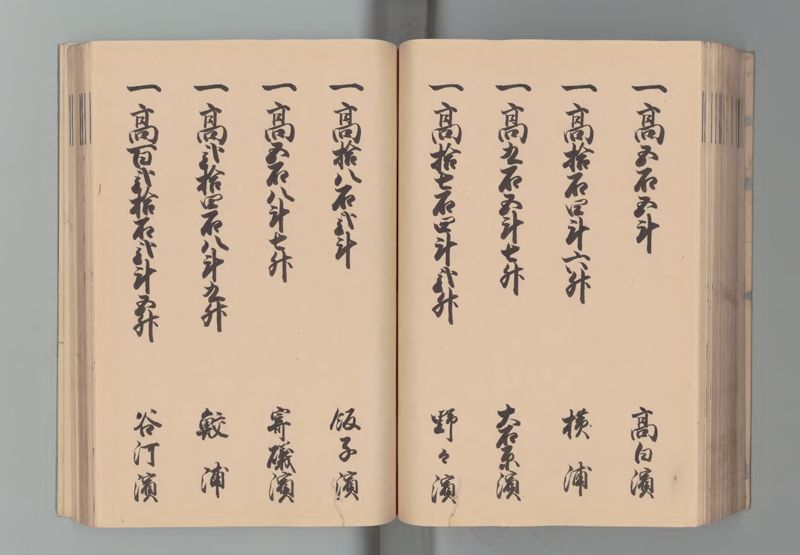 一高五石五斗 高白濱
一高拾石四斗六升 横浦
一高九石五斗七升 大石原濱
一高拾七石四斗弐升 野々濱
一高拾八石弐斗 飯子濱
一高五石八斗七升 寄磯濱
一高弐拾四石八斗九升 鮫浦
一高百弐拾石弐斗五升 谷汀濱